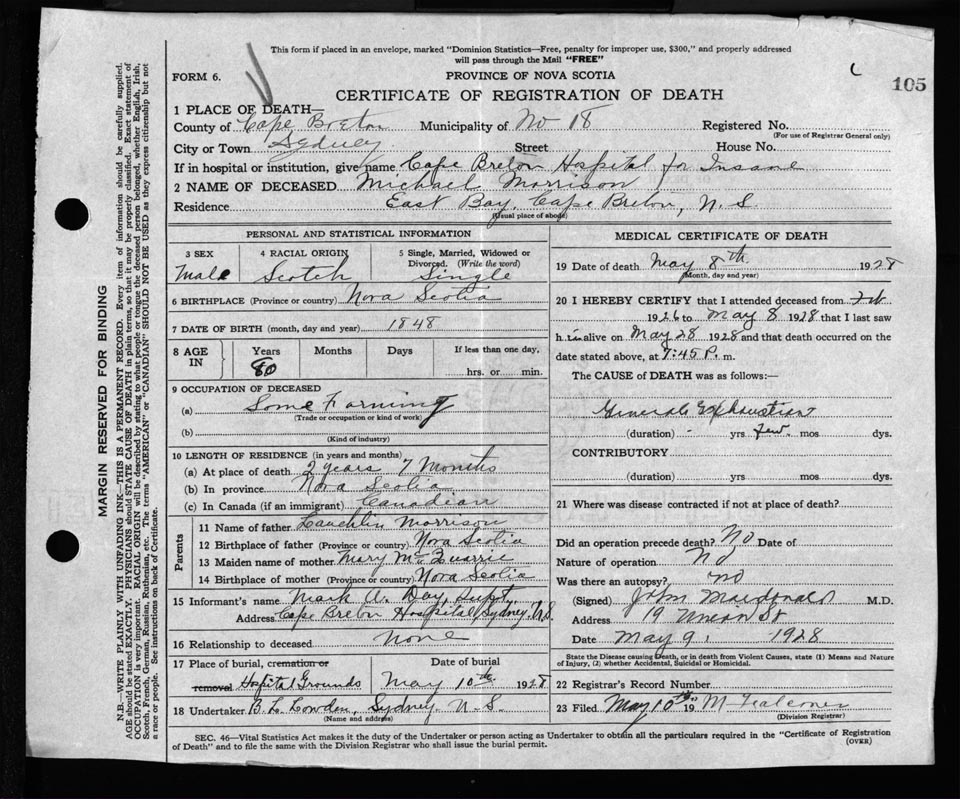 This form if placed in an envelope, marked "Dominion Statistics—Free, penalty for improper use, $300," and properly addressed
will pass through the Mail "FREE"
FORM 6.
PROVINCE OF NOVA SCOTIA
105
CERTIFICATE OF REGISTRATION OF DEATH
1 PLACE OF DEATH—
County of Cape Breton Municipality of No 18 Registered No.
(For use of Registrar General only)
City or Town Sydney Street House No.
If in hospital or institution, give name Cape Breton Hospital for Insane
2 NAME OF DECEASED Michael Morrison
Residence East Bay, Cape Breton, N. S.
(Usual place of abode)
PERSONAL AND STATISTICAL INFORMATION
3 SEX 4 RACIAL ORIGIN 5 Single, Married, Widowed or
Divorced. (Write the word)
Male Scotch Single
6 BIRTHPLACE (Province or country) Nova Scotia
7 DATE OF BIRTH (month, day and year) 1848
8 AGE IN Years Months Days If less than one day,
80 hrs. or min.
9 OCCUPATION OF DECEASED
(a) Some Farming
(Trade or occupation or kind of work)
(b)
(Kind of industry)
10 LENGTH OF RESIDENCE (in years and months)
(a) At place of death 2 years 7 Months
(b) In province Nova Scotia
(c) In Canada (if an immigrant) Canadian
Parents
11 Name of father Lauchlin Morrison
12 Birthplace of father (Province or country) Nova Scotia
13 Maiden name of mother Mary McQuarrie
14 Birthplace of mother (Province or country) Nova Scotia
15 Informant's name Mark A. Day, Supt.
Address Cape Breton Hospital, Sydney, N.S.
16 Relationship to deceased None
17 Place of burial, cremation or Date of burial
removal Hospital Grounds May 10th 1928
18 Undertaker Sydney N. S.
(Name and address)
MEDICAL CERTIFICATE OF DEATH
19 Date of death May 8th 1928
(Month, day and year)
20 I HEREBY CERTIFY that I attended deceased from Feb
1926 to May 8 1928 that I last saw
h alive on May 28 1928 and that death occurred on the
date stated above, at 7:45 P. m.
The CAUSE of DEATH was as follows:—
General Exhaustion
(duration) - yrs few mos dys.
CONTRIBUTORY
(duration) yrs mos dys.
21 Where was disease contracted if not at place of death?
Did an operation precede death? No Date of
Nature of operation No
Was there an autopsy? no
(Signed) John Macdonald M.D.
Address 19 Union St
Date May 9, 1928
State the Disease causing Death, or in death from Violent Causes, state (1) Means and Nature
of Injury, (2) whether Accidental, Suicidal or Homicidal.
22 Registrar's Record Number
23 Filed May 10th 19
(Division Registrar)
SEC. 46—Vital Statistics Act makes it the duty of the Undertaker or person acting as Undertaker to obtain all the particulars required in the "Certificate of Registration
of Death" and to file the same with the Division Registrar who shall issue the burial permit.
(OVER)
MARGIN RESERVED FOR BINDING
N.B.—WRITE PLAINLY WITH UNFADING INK—THIS IS A PERMANENT RECORD. Every item of information should be carefully supplied.
AGE should be stated EXACTLY. PHYSICIANS should STATE CAUSE OF DEATH in plain terms, so that it may be properly classified. Exact statement of
OCCUPATION is very important. RACIAL ORIGIN will be described by stating to what people or tongue the deceased person belonged, whether English, Irish,
Scotch, French, German, Russian, Ruthenian, etc. The terms "AMERICAN" or "CANADIAN" SHOULD NOT BE USED as they express citizenship but not
a race or people. See instructions on back of Certificate.